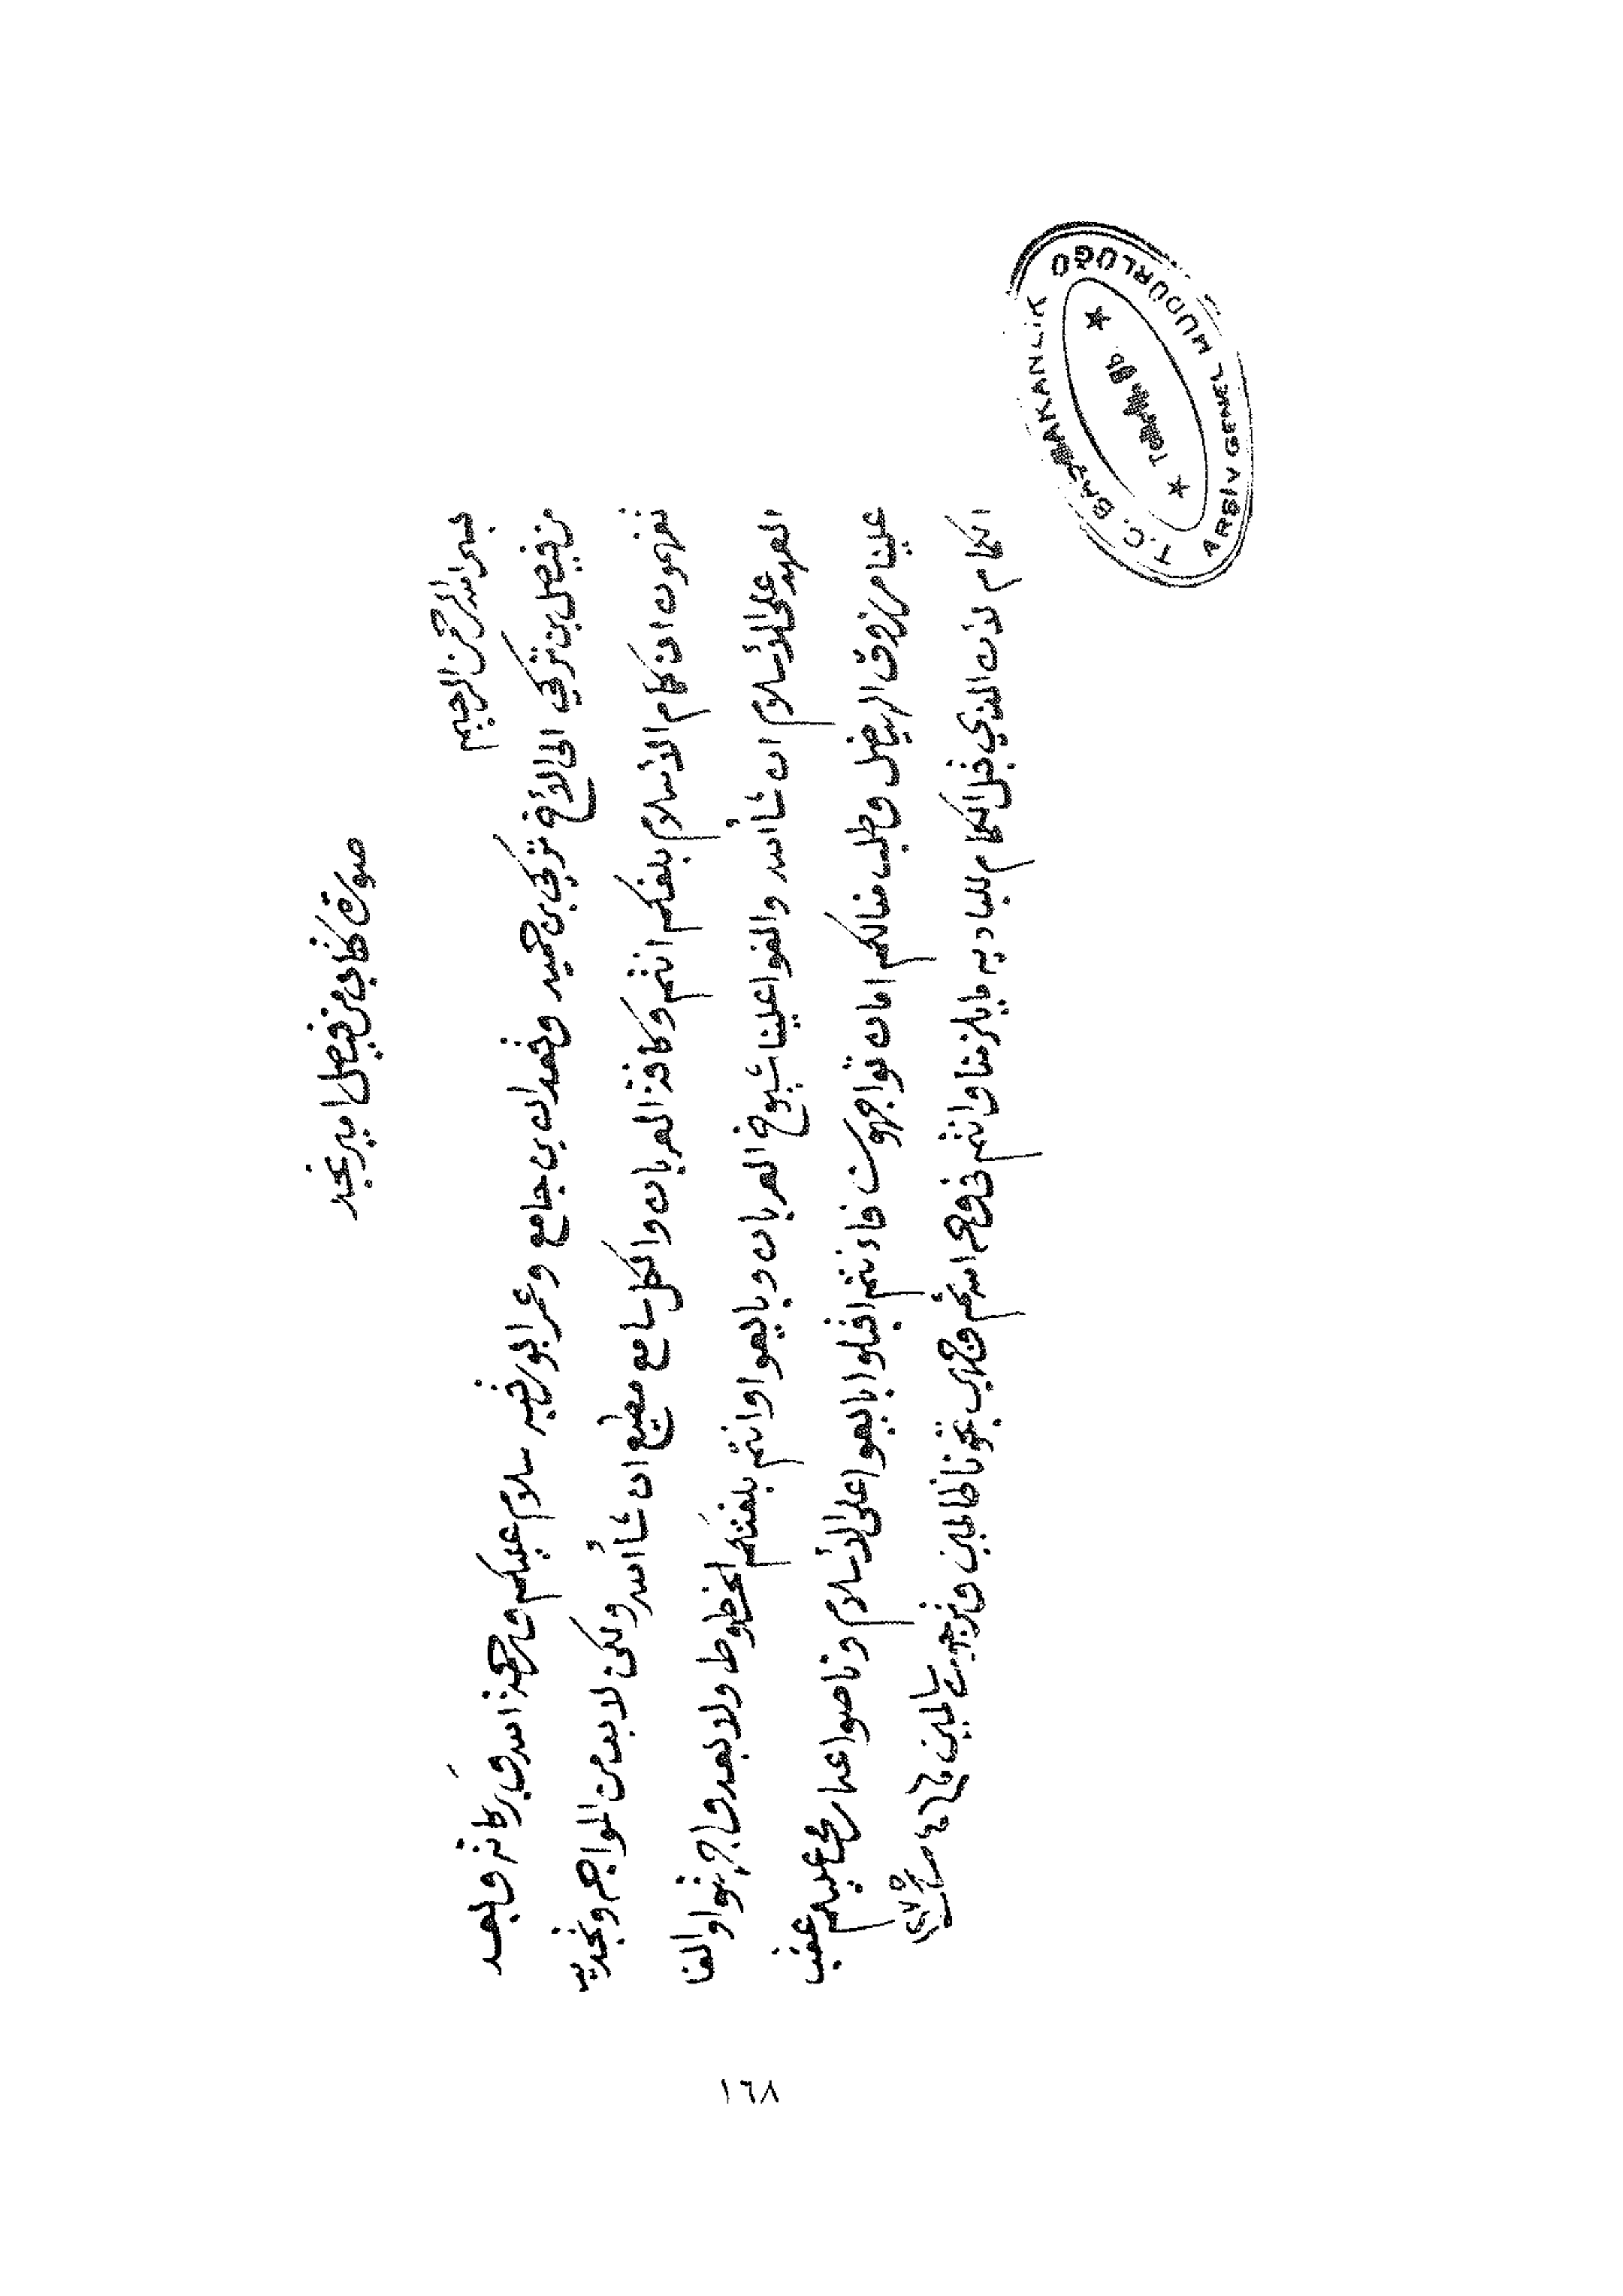 صورة كتاب من فيصل امير نجد
بسم الله الرحمن الرحيم
من فيصل بن تركي الى الأخ تركي بن حميد وضمدان بن جامع وعمر ابو رقبه سلام عليكم ورحمة الله وبركاته وبعد
تفهمون ان كلام الأسلام بلغكم انتم وكافة العربان والكل سامع مطيع ان شأ الله ولكن لا بد من المواجه وتجديد
العهد على الأسلام ان شأ الله والفوا علينا شيوخ العربان وبايعوا وانتم بلغتكم الخطوط ولا بعد واجهتوا والفا
علينا مرزوق الهيضل وطلب منا لكم امان تواجهون فاءنتم اقبلوا بايعوا على الأسلام وناصوا عليكم عقب
الكلام لأن الذي قبل الكلام للباديه ما يلزمنا وانتم في وجه الله ثم وجهي بتحونا طالبين وترجعون سالمين ١٢٧٥
T.C. BAŞBAKANLIK
ARŞİV GENEL MÜDÜRLÜĞÜ
١٦٨